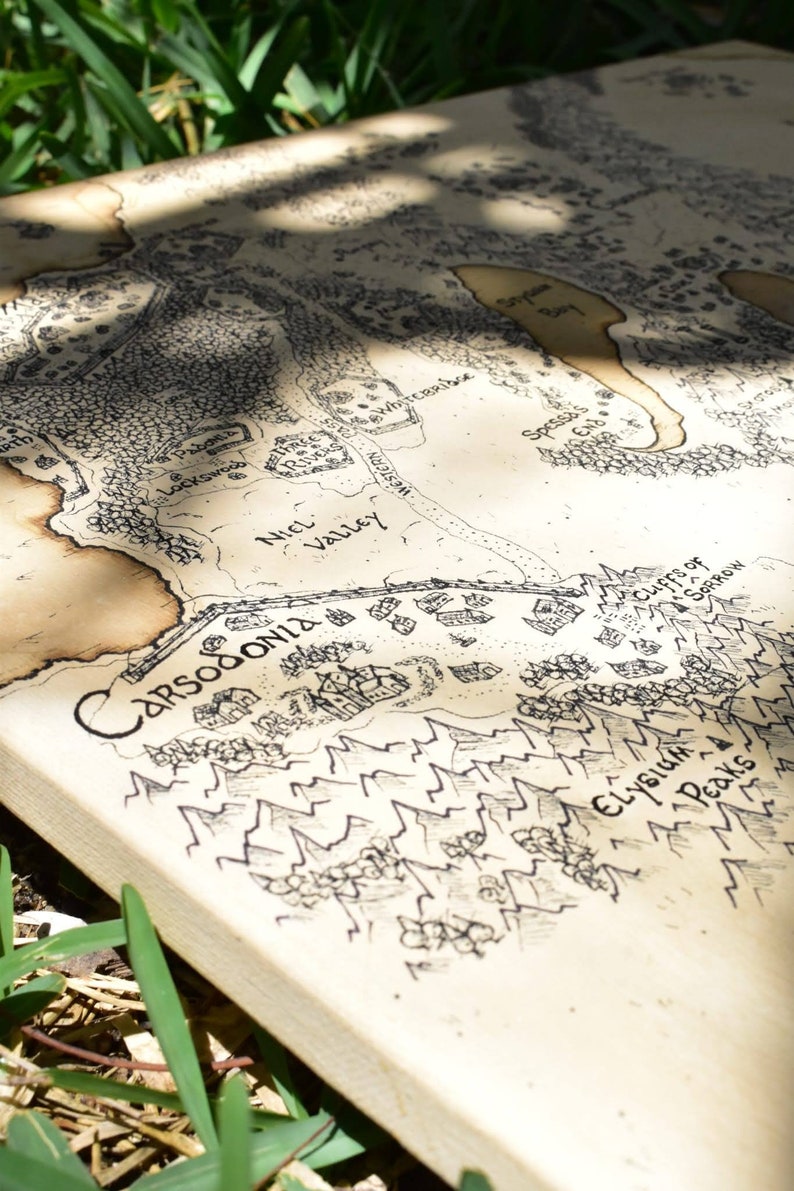 Stygian
Bay
Whitebridge
Spessa's
End
Padonia
Three
Rivers
Lockswood
Western
Niel
Valley
Cliffs of
Sorrow
Carsodonia
Elysium
Peaks